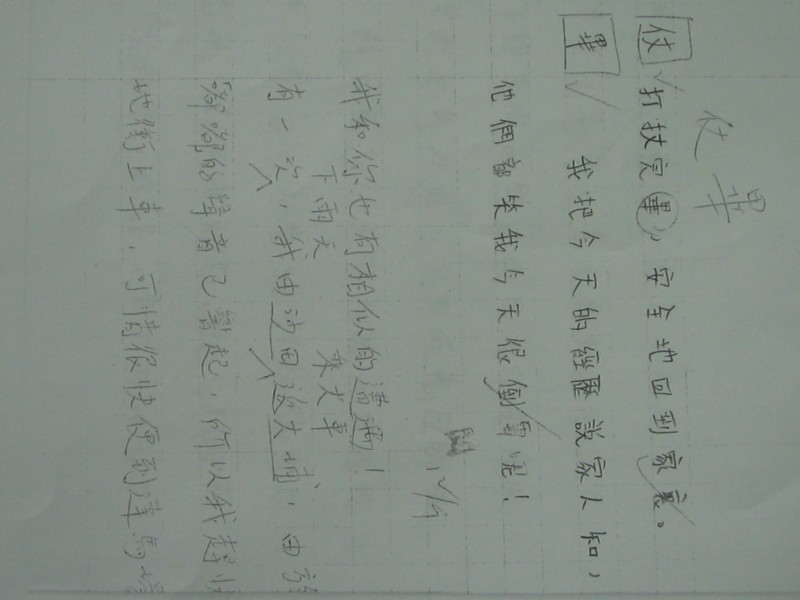 仗 畢
仗 打技完畢，安全地回到家裏。
畢 我把今天的經歷說家人知，
他們都笑我今天很倒霉呢！
我和你也有相似的遭遇！
下雨天 乘火車
有一次，我由沙田返大埔，由於
嘟嘟的聲音已響起，所以我趕快
地衝上車，可惜很快便到達馬場